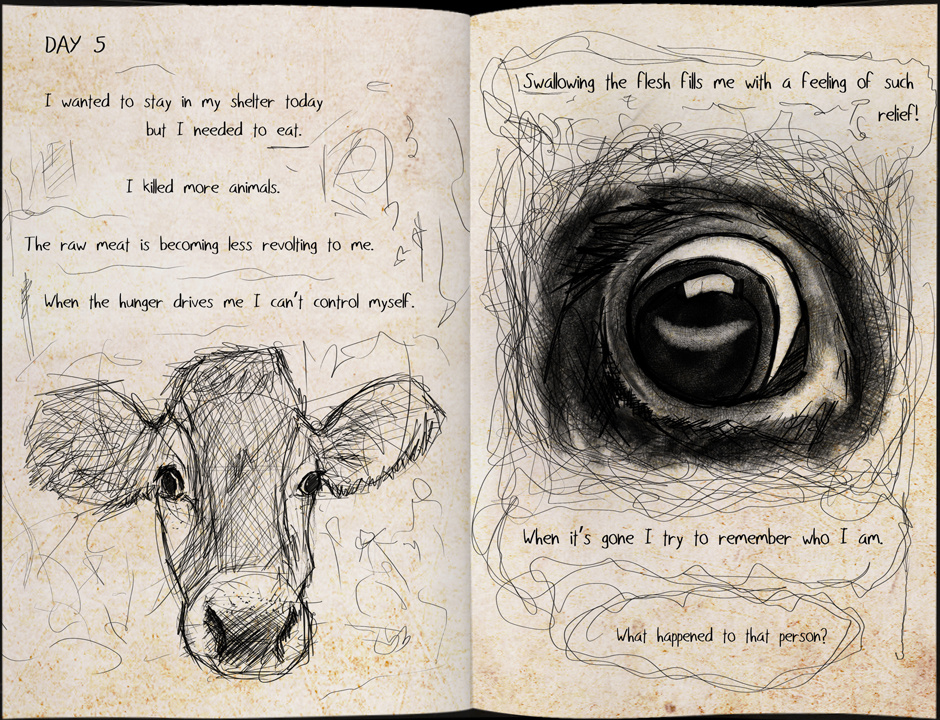 DAY 5
I wanted to stay in my shelter today
but I needed to eat.
I killed more animals.
The raw meat is becoming less revolting to me.
When the hunger drives me I can't control myself.
Swallowing the flesh fills me with a feeling of such
relief!
When it's gone I try to remember who I am.
What happened to that person?